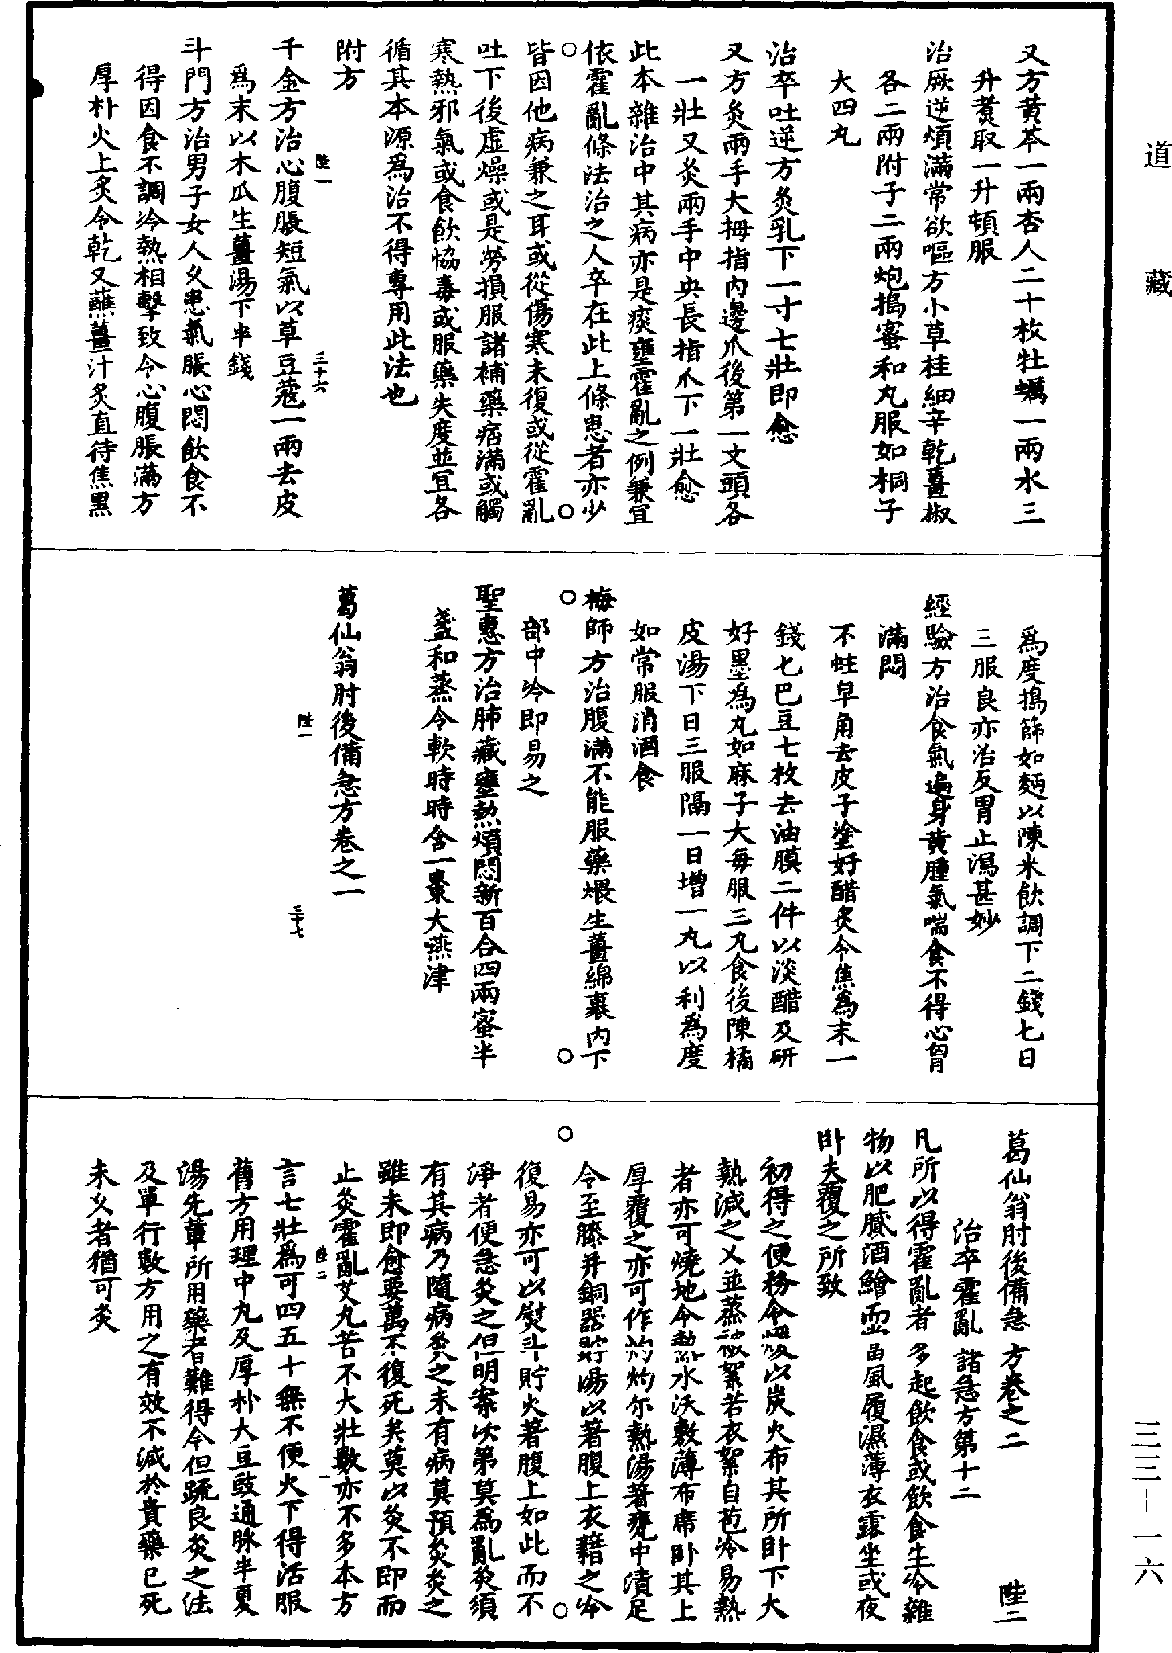 道藏
又方黃芩一兩杏人二十枚牡蠣一兩水三
升煑取一升頓服
治厥逆煩滿常欲嘔方小草桂細辛乾薑椒
各二兩附子二兩炮搗蜜和丸服如桐子
大四丸
治卒吐逆方灸乳下一寸七壯即愈
又方灸兩手大拇指內邊爪後第一文頭各
一壯又灸兩手中央長指爪下一壯愈
此本雜治中其病亦是痰壅霍亂之例兼宜
依霍亂條法治之人卒在此上條患者亦少
皆因他病兼之耳或從傷寒未復或從霍亂
吐下後虛燥或是勞損服諸補藥痞滿或觸
寒熱邪氣或食飲恊毒或服藥失度並宜各
循其本源為治不得專用此法也
附方
陞一 三十六
千金方治心腹脹短氣以草豆蔻一兩去皮
為末以木瓜生薑湯下半錢
斗門方治男子女人久患氣脹心悶飲食不
得因食不調冷熱相擊致令心腹脹滿方
厚朴火上炙令乾又蘸薑汁炙直待焦黑
為度搗篩如麵以陳米飲調下二錢七日
三服良亦治反胃止瀉甚妙
經驗方治食氣遍身黃腫氣喘食不得心胷
滿悶
不蛀皁角去皮子塗好醋炙令焦為末一
錢七巴豆七枚去油膜二件以淡醋及研
好墨為丸如麻子大每服三丸食後陳橘
皮湯下日三服隔一日增一丸以利為度
如常服消酒食
梅師方治腹滿不能服藥煨生薑綿裹內下
部中冷即易之
聖惠方治肺藏壅熱煩悶新百合四兩蜜半
盞和蒸令軟時時含一棗大嚥津
陞一 三十七
葛仙翁肘後備急方卷之一
葛仙翁肘後備急方卷之二 陞二
治卒霍亂諸急方第十二
凡所以得霍亂者多起飲食或飲食生冷雜
物以肥膩酒鱠而當風履濕薄衣露坐或夜
臥失覆之所致
初得之便務令煖以炭火布其所臥下大
熱減之又並蒸被絮若衣絮自苞冷易熱
者亦可燒地令熱水沃敷薄布席臥其上
厚覆之亦可作灼灼尔熱湯著甕中漬足
令至膝并銅器貯湯以著腹上衣藉之冷
復易亦可以熨斗貯火著腹上如此而不
淨者便急灸之但明案次第莫為亂灸須
有其病乃隨病灸之未有病莫預灸灸之
雖未即愈要萬不復死矣莫以灸不即而
止灸霍亂艾丸苦不大壯數亦不多本方
陞二 一
言七壯為可四五十無不便火下得活服
舊方用理中丸及厚朴大豆豉通脉半夏
湯先軰所用藥者難得今但疏良灸之法
及單行數方用之有效不減於貴藥已死
未久者猶可灸
三三-一六